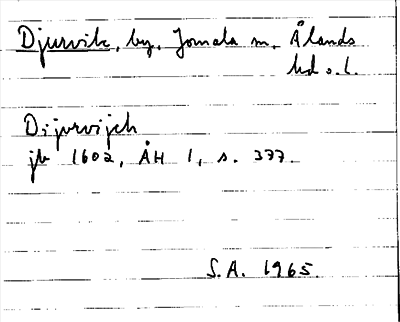 Djurvik, by, Jomala sn, Ålands
hd o. l.
Dijurvijch
jb 1602, ÅH 1, s. 377.
S.A. 1965.